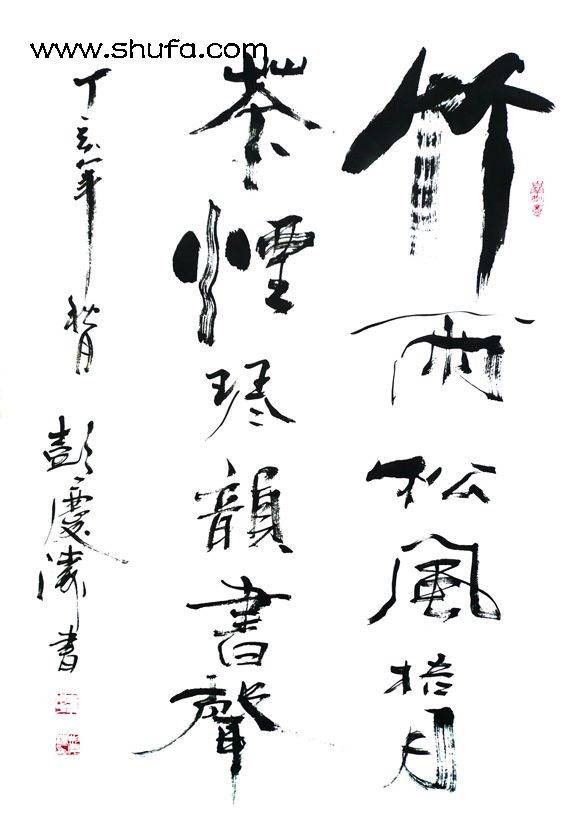 www.shufa.com
竹雨松風梧月
茶煙琴韻書聲
丁亥年秋月彭慶涛書